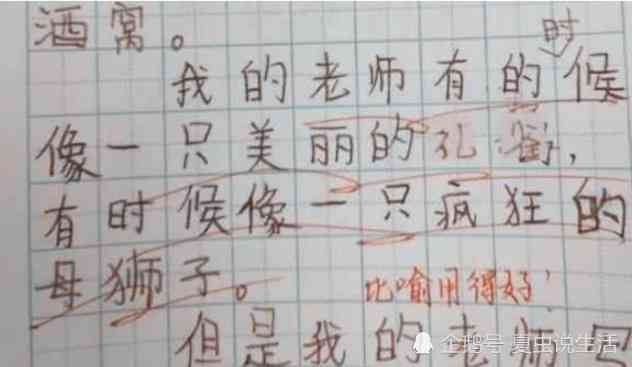 酒窝。
时
我的老师有的候
像一只美丽的孔雀，
有时候像一只疯狂的
母狮子。 比喻用得好！
但是我的老师
企鹅号 夏虫说生活